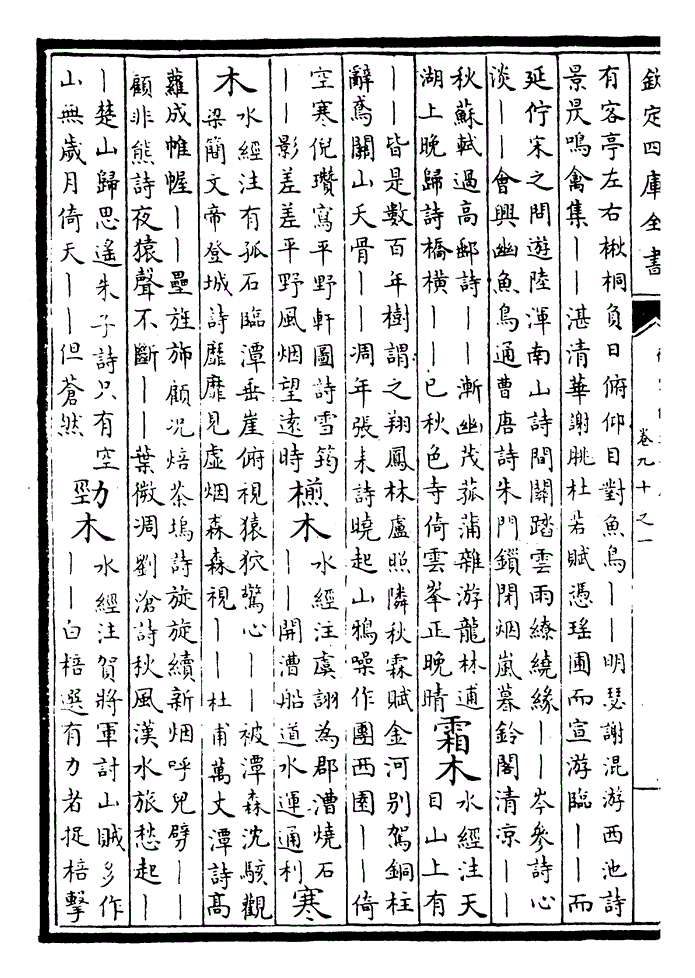 欽定四庫全書
卷九十之一
有客亭左右楸桐負日俯仰目對魚鳥｜｜明瑟謝混游西池詩
景昃鳴禽集｜｜湛清華謝朓杜若賦憑瑤圃而宣游臨｜｜而
延佇宋之問遊陸渾南山詩間關踏雲雨繚繞緣｜｜岑參詩心
淡｜｜會興幽魚鳥通曹唐詩朱門鎖閉烟嵐暮鈴閣清涼｜｜
秋蘇軾過高郵詩｜｜漸幽茂菰蒲雜游龍林逋
湖上晚歸詩橋橫｜｜已秋色寺倚雲峯正晚晴
霜木
水經注天
日山上有
｜｜皆是數百年樹謂之翔鳳林盧照隣秋霖賦金河别駕銅柱
辭鳶關山夭骨｜｜凋年張耒詩曉起山鴉噪作團西園｜｜倚
空寒倪瓚寫平野軒圖詩雪筠
｜｜影差差平野風烟望遠時
木
水經注虞詡為郡漕燒石
｜｜開漕船道水運通利
寒
木
水經注有孤石臨潭垂崖俯視猿狖驚心｜｜被潭森沈駭觀
梁簡文帝登城詩靡靡見虛烟森森視｜｜杜甫萬丈潭詩高
蘿成帷幄｜｜壘旌斾顧况焙茶塢詩旋旋續新烟呼兒劈｜｜
顧非熊詩夜猿聲不斷｜｜葉微凋劉滄詩秋風漢水旅愁起｜
｜楚山歸思遙朱子詩只有空
山無歲月倚天｜｜但蒼然
勁木
水經注賀將軍討山賊多作
｜｜白棓選有力者捉棓擊